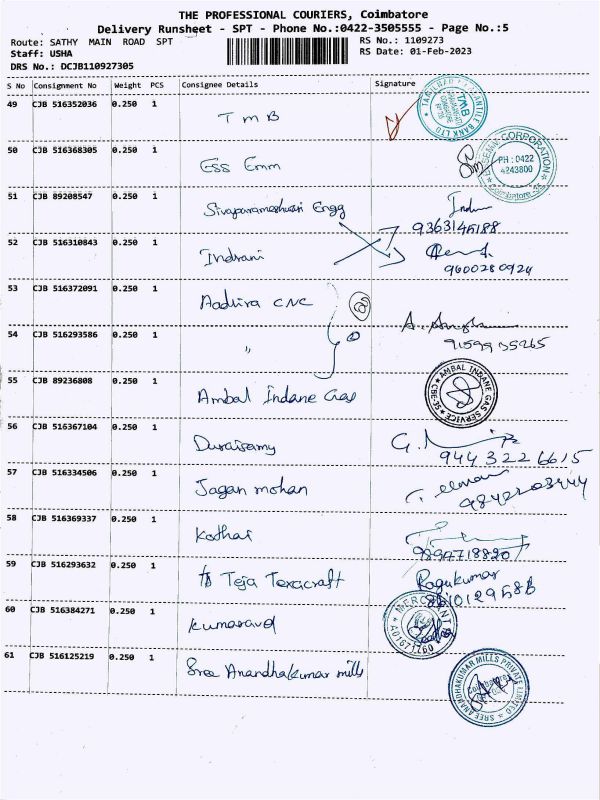 THE PROFESSIONAL COURIERS, Coimbatore
Delivery Runsheet - SPT - Phone No.:0422-3505555 - Page No.:5
Route: SATHY MAIN ROAD SPT RS No.: 1109273
Staff: USHA RS Date: 01-Feb-2023
DRS No.: DCJB110927305
S No Consignment No Weight PCS Consignee Details Signature
49 CJB 516352036 0.250 1 TMB
TAMILNAD MERCANTILE BANK LTD TMB
50 CJB 516368305 0.250 1 Ess Emm
CORPORATION PH: 0422 4243800 Coimbatore
51 CJB 89208547 0.250 1 Sivaparameshwari Engg Indu
9363145188
52 CJB 516310843 0.250 1 Indrani
9600280924
53 CJB 516372091 0.250 1 Aadhira CNC
54 CJB 516293586 0.250 1 "
9159935265
55 CJB 89236808 0.250 1 Ambal Indane Gas
AMBAL INDANE GAS SERVICE CBE-35
56 CJB 516367104 0.250 1 Duraisamy
9443226615
57 CJB 516334506 0.250 1 Jagan mohan
58 CJB 516369337 0.250 1 Kothai
9894718820
59 CJB 516293632 0.250 1 Teja Texacraft Ragukumar
60 CJB 516384271 0.250 1 Kumaravel
MERCHANT
61 CJB 516125219 0.250 1 Sree Anandhakumar mills
SREE ANANDHAKUMAR MILLS PRIVATE LIMITED Coimbatore